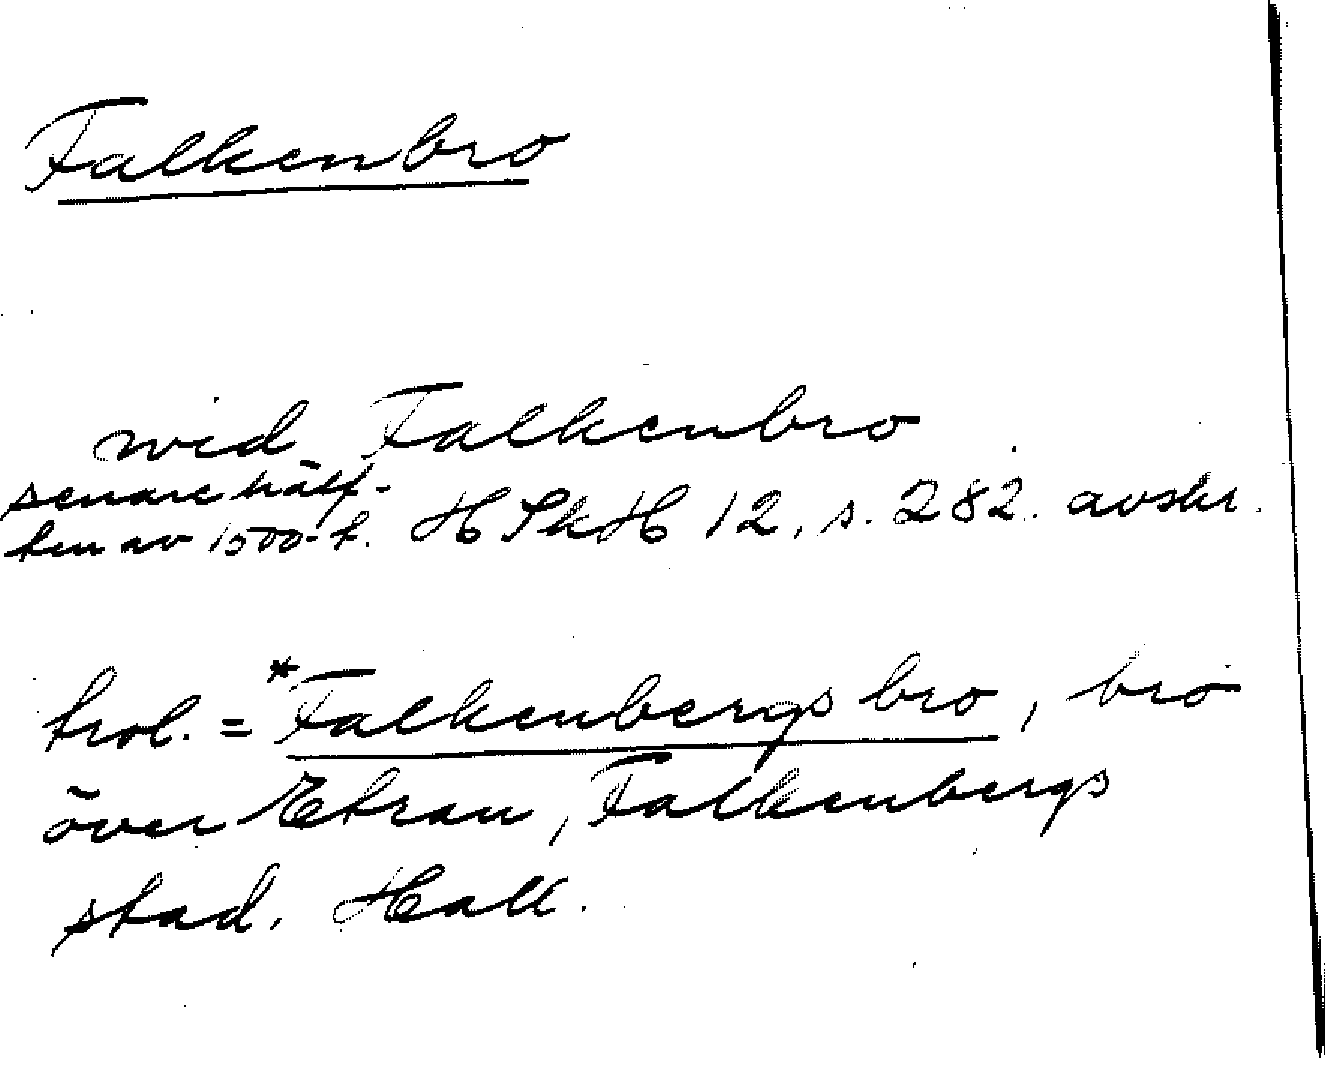 Falkenbro
wid Falkenbro
senare hälf-
ten av 1500-t. HSkH 12, s. 282. avskr.
trol. = *Falkenbergs bro, bro
över Etran, Falkenbergs
stad, Hall.